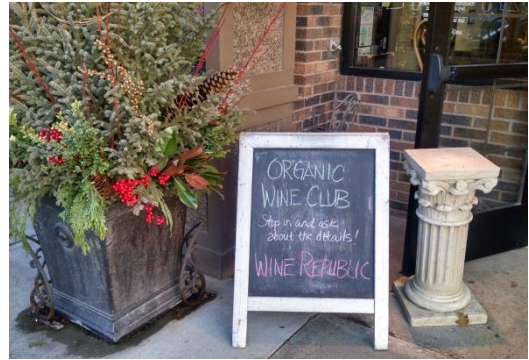 ORGANIC
WINE CLUB
Stop in and ask
about the details!
WINE REPUBLIC